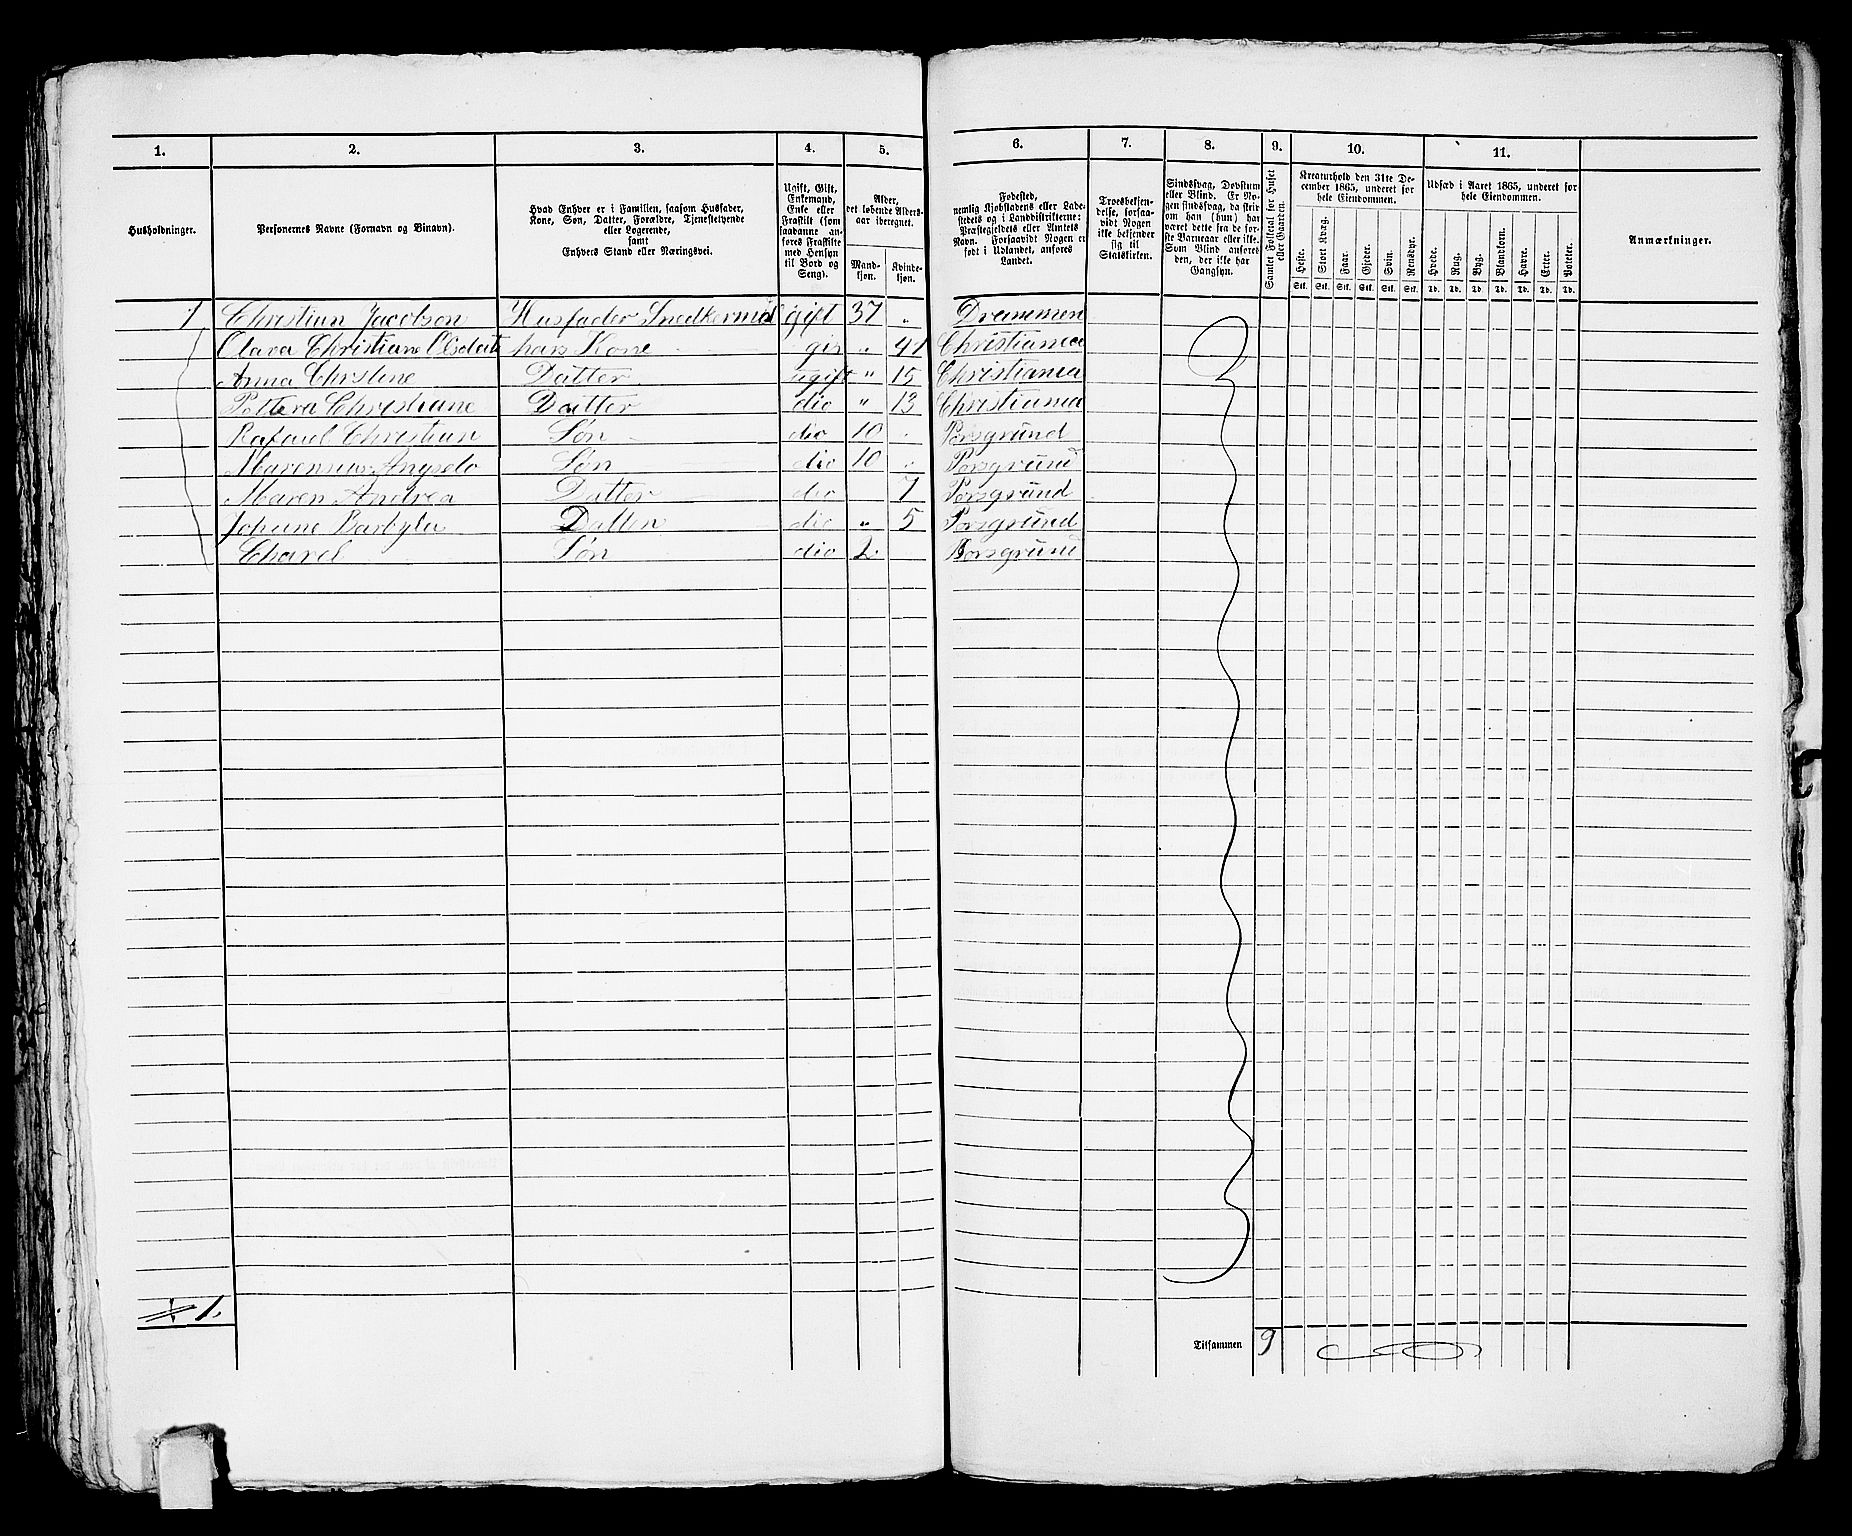 1. 2. 3. 4. 5. 6. 7. 8. 9. 10. 11.
Husholdninger.
Personernes Navne (Fornavn og Binavn).
Hvad Enhver er i Familien, saasom Husfader,
Kone, Søn, Datter, Forældre, Tjenestetyende
eller Logerende,
samt
Enhvers Stand eller Næringsvei.
Ugift, Gift,
Enkemand,
Enke eller
Fraskilt (som
saadanne an-
føres Fraskilte
med Hensyn
til Bord og
Seng).
Alder,
det løbende Alders-
aar iberegnet.
Mand-
kjøn.
Kvinde-
kjøn.
Fødested,
nemlig Kjøbstadens eller Lade-
stedets og i Landdistrikterne:
Præstegjeldets eller Amtets
Navn. Forsaavidt Nogen er
født i Udlandet, anføres
Landet.
Troesbekjen-
delse, forsaa-
vidt Nogen
ikke bekjender
sig til
Statskirken.
Sindssvag, Døvstum
eller Blind. Er No-
gen sindssvag, da skriv
om han (hun) har
været dette fra de før-
ste Barneaar eller ikke.
Som Blind anføres
den, der ikke har
Gangsyn.
Samlet Folketal for Huset
eller Gaarden.
Kreaturhold den 31te De-
cember 1865, underet for
hele Eiendommen.
Heste. Stort Kvæg. Faar. Gjeder. Svin. Rensdyr.
Stk. Stk. Stk. Stk. Stk. Stk.
Udsæd i Aaret 1865, underet for
hele Eiendommen.
Hvede. Rug. Byg. Blandkorn. Havre. Erter. Poteter.
Td. Td. Td. Td. Td. Td. Td.
Anmærkninger.
1 Christian Jacobson Husfader Snedkermst gift 37 " Drammen
Clara Christiane Olsdatt hans Kone gif " 41 Christiania
Anna Christine Datter ugift " 15 Christiania
Pettera Christiane Datter dio " 13 Christiania
Rafael Christian Søn dio 10 " Porsgrund
Søn dio 10 " Porsgrund
Maren Andrea Datter dio 7 Porsgrund
Datter dio " 5 Porsgrund
Charel Søn dio 2 Porsgrund
1.
Tilsammen 9